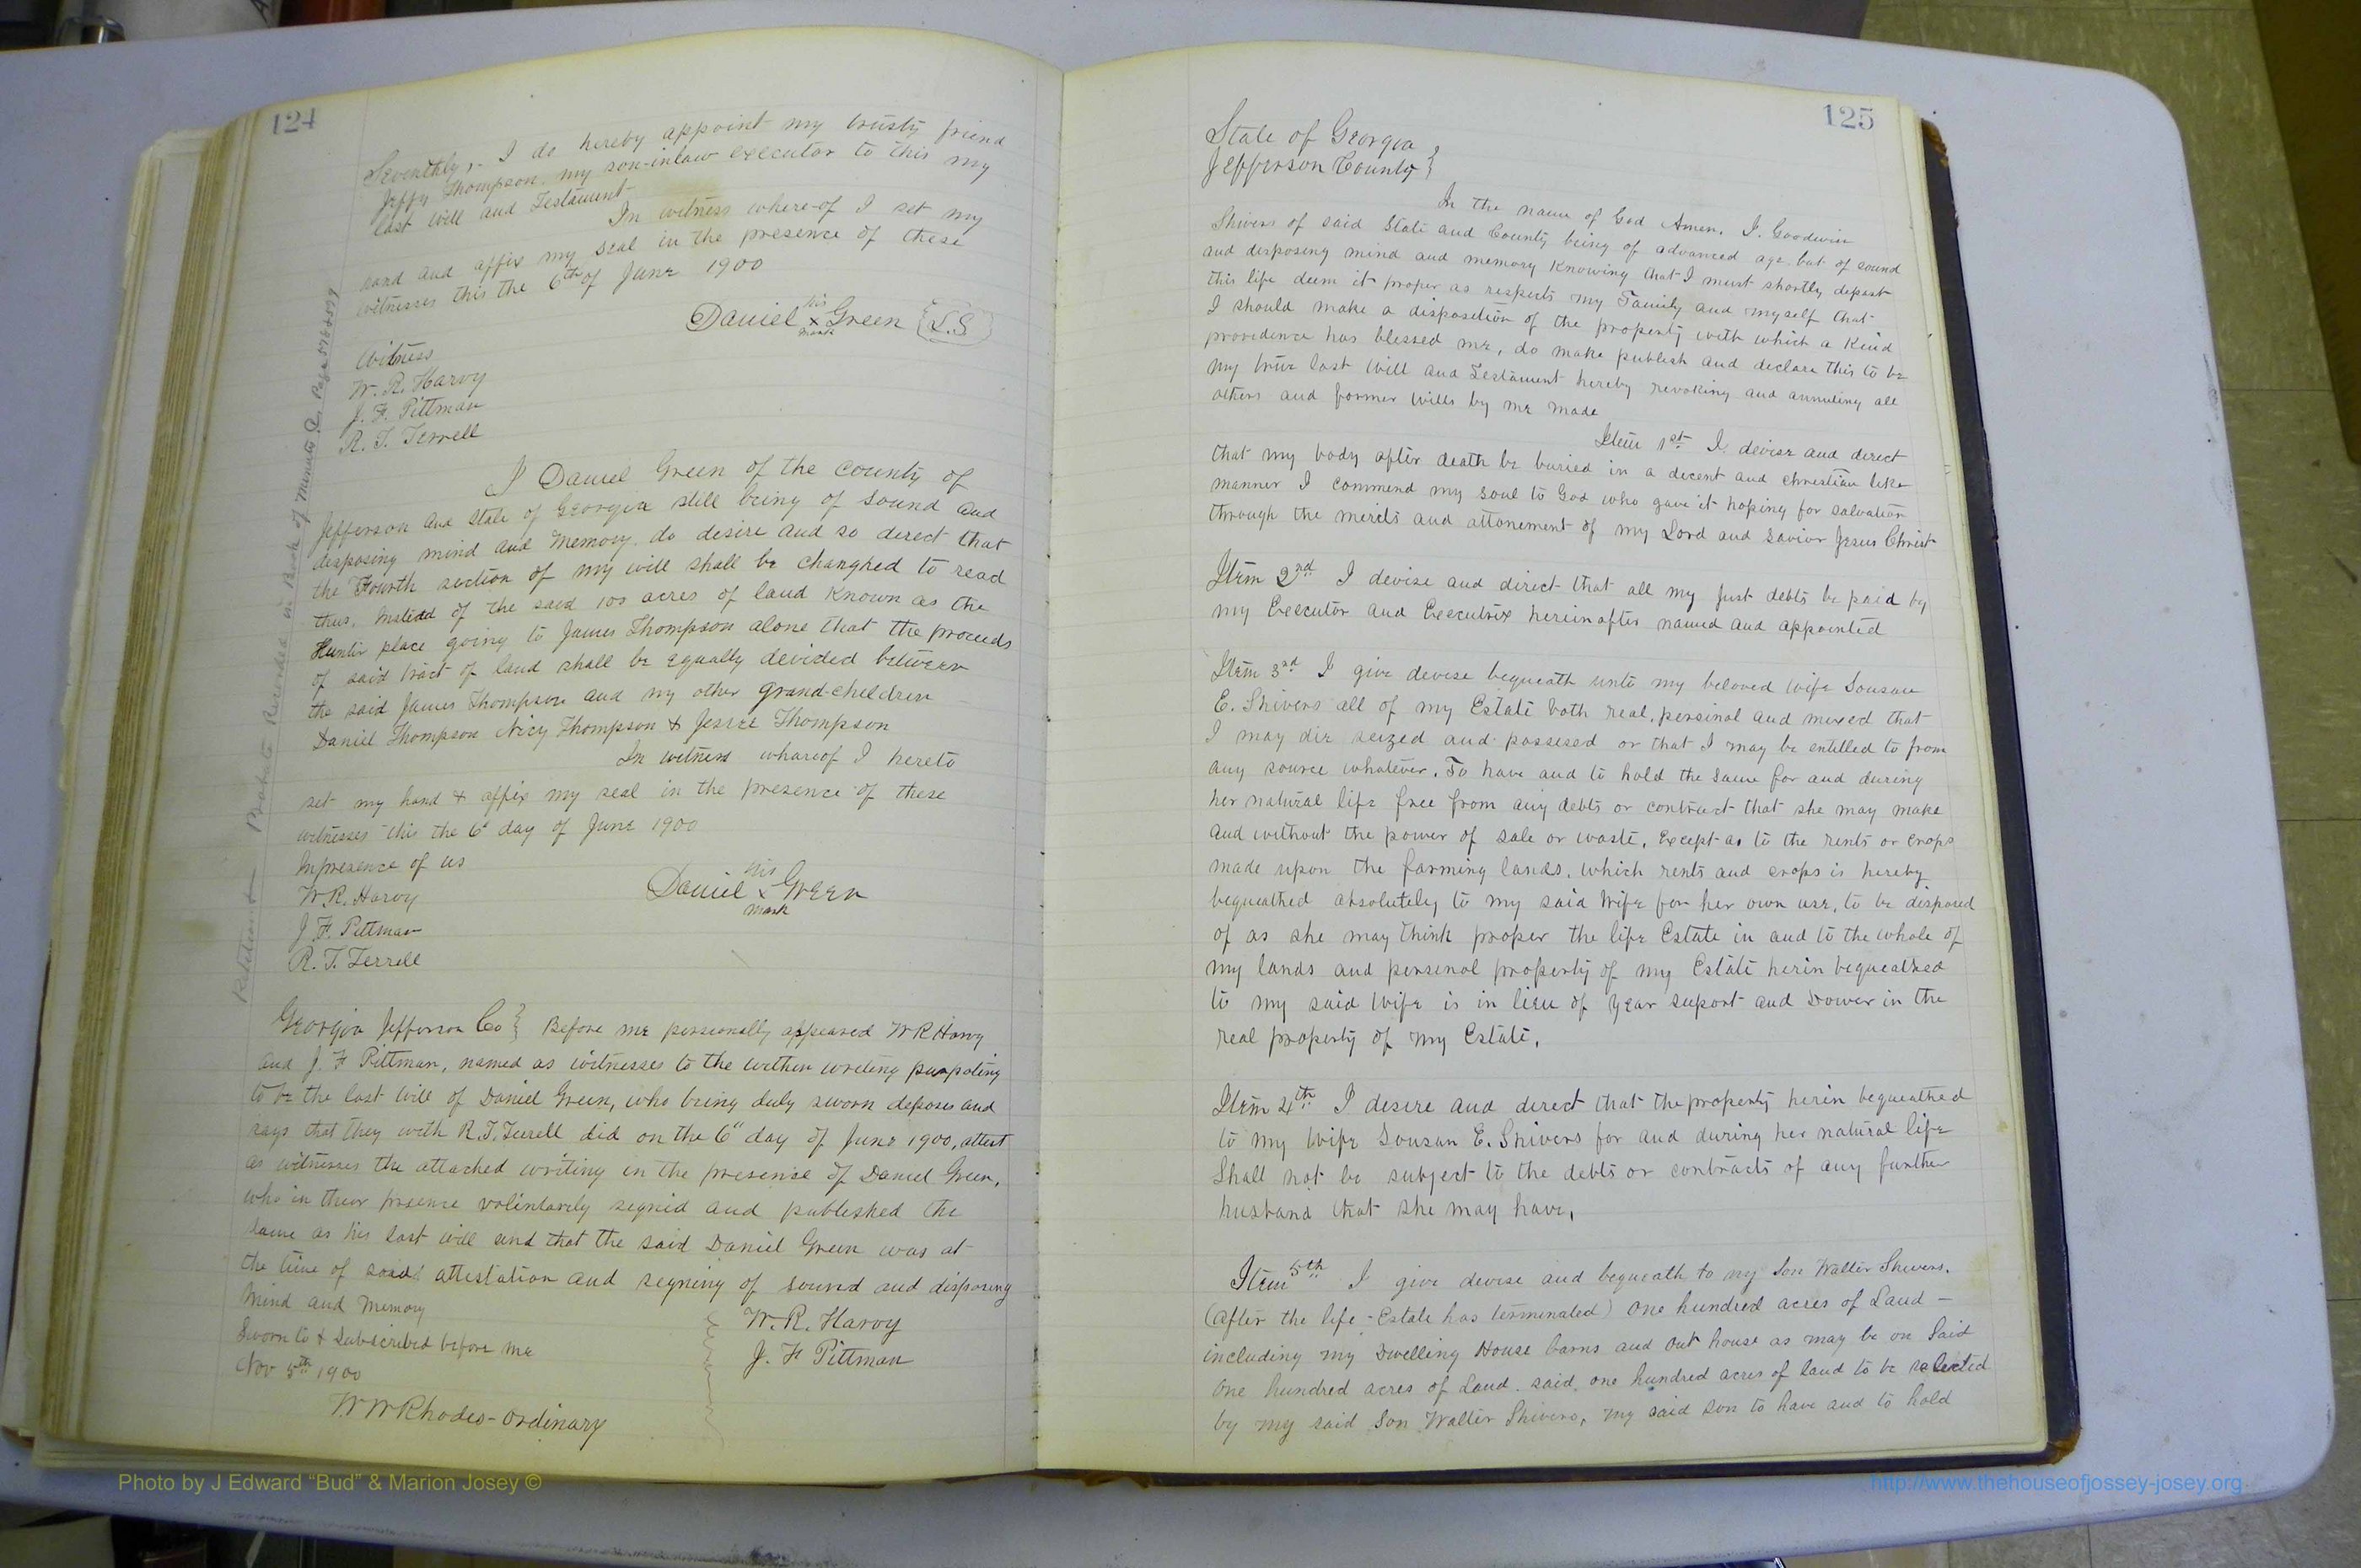 124
Seventhly,- I do hereby appoint my trusty friend
Jeffy Thompson my son-inlaw executor to this my
last will and Testament
In witness where-of I set my
hand and affix my seal in the presence of these
witnesses this the 6th of June 1900
his
Daniel x Green {L.S}
mark
Witness
W. R. Harvy
J. F. Pittman
R. T. Terrell
I Daniel Green of the county of
Jefferson and State of Georgia still being of sound and
disposing mind and memory. do desire and so direct that
the Fourth section of my will shall be changhed to read
thus, Instead of the said 100 acres of land known as the
Hunter place going to James Thompson alone that the proceeds
of said tract of land shall be equally devided between
the said James Thompson and my other grand-children
Daniel Thompson Nicy Thompson & Jessee Thompson
In witness whareof I hereto
set my hand & affix my seal in the presence of these
witnesses this the 6" day of June 1900
In presence of us
W. R. Harvy
his
Daniel x Green
mark
J. F. Pittman
R. T. Terrell
Georgia Jefferson Co } Before me personally appeared W R Harvy
and J. F Pittman, named as witnesses to the within writing purpoting
to be the last will of Daniel Green, who being duly sworn deposes and
says that they with R. T. Terrell did on the 6" day of June 1900, attest
as witnesses the attached writing in the presense of Daniel Green,
who in their presence volintarily signid and published the
same as his last will and that the said Daniel Green was at
the time of said attestation and signing of sound and disposing
mind and memory
Sworn to & Subscribed before me
Nov 5th 1900
W. R. Harvy
J. F Pittman
W W Rhodes - Ordinary
Probate Recorded in Book of Minutes Page
125
State of Georgia
Jefferson County }
In the name of God Amen. I. Goodwin
Shivers of said State and County being of advanced age but of sound
and disposing mind and memory knowing that I must shortly depart
this life deem it proper as respects my Family and myself that
I should make a disposition of the property with which a kind
providence has blessed me, do make publish and declare this to be
my true last will and Testament hereby revoking and annuling all
others and former wills by me made
Item 1st I. devise and direct
that my body after death be buried in a decent and christian like
manner I commend my soul to God who gave it hoping for salvation
through the merits and attonement of my Lord and Savior Jesus Christ
Item 2nd I devise and direct that all my just debts be paid by
my Executor and Executrix hereinafter named and appointed
Item 3rd I give devise bequeath unto my beloved wife Sousan
E. Shivers all of my Estate both real, personal and mixed that
I may die seized and possesed or that I may be entitled to from
any source whatever. To have and to hold the same for and during
her natural life free from any debts or contract that she may make
and without the power of sale or waste, except as to the rents or crops
made upon the farming lands, which rents and crops is hereby
bequeathed absolutely to my said wife for her own use, to be disposed
of as she may think proper the life Estate in and to the whole of
my lands and personal property of my Estate herin bequeathed
to my said wife is in lieu of year suport and Dower in the
real property of my Estate.
Item 4th I desire and direct that the property herin bequeathed
to my wife Sousan E. Shivers for and during her natural life
Shall not be subject to the debts or contracts of any further
husband that she may have.
Item 5th I give devise and bequeath to my Son Walter Shivers.
(after the life-Estate has terminated) one hundred acres of Land -
including my Dwelling House barns and out house as may be on Said
One hundred acres of Land. said one hundred acres of land to be selected
by my said Son Walter Shivers, my said son to have and to hold
Photo by J Edward “Bud” & Marion Josey ©
http://www.thehouseofjossey-josey.org